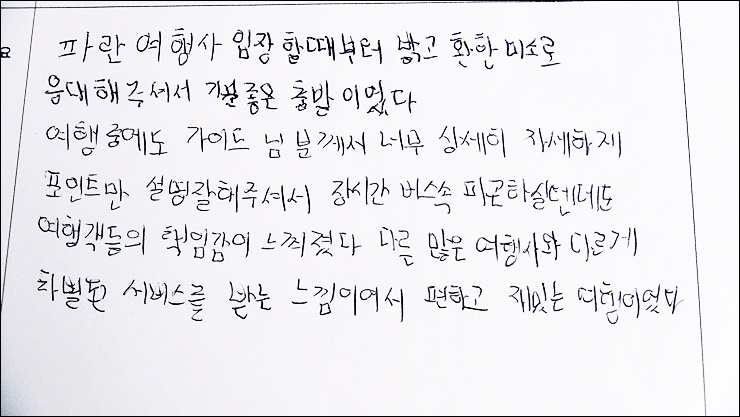 요
파란여행사 입장할때부터 밝고 환한 미소로
응대해주셔서 기분좋은 출발이었다
여행중에도 가이드님분께서 너무 상세히 자세하게
포인트만 설명잘해주셔서 장시간 버스속 피곤하실텐데도
여행객들의 책임감이 느껴졌다 다른 많은 여행사와 다르게
차별된 서비스를 받는 느낌이여서 편하고 재밌는 여행이었다